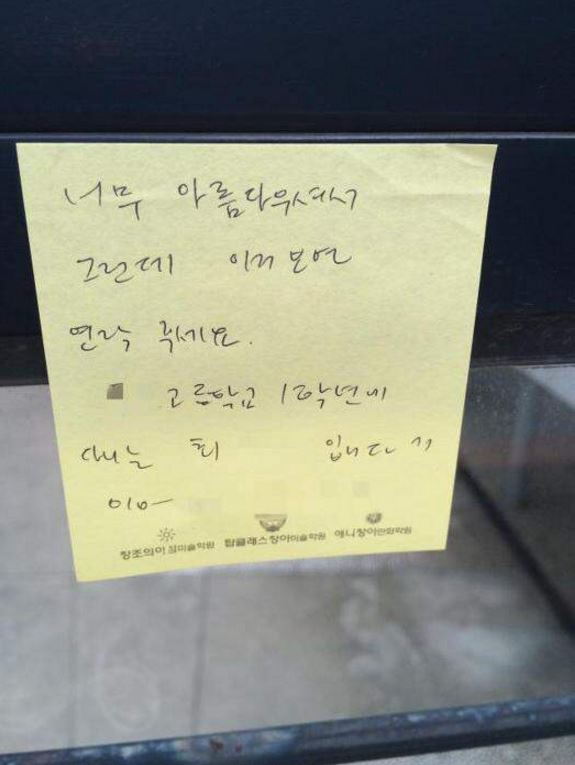 너무 아름다우셔서
그런데 이거 보면
연락 주세요.
고등학교 1학년에
재는 최 입니다 ㄱㄱ
010-
창조의아침미술학원 탑클래스창아미술학원 애니창아만화학원